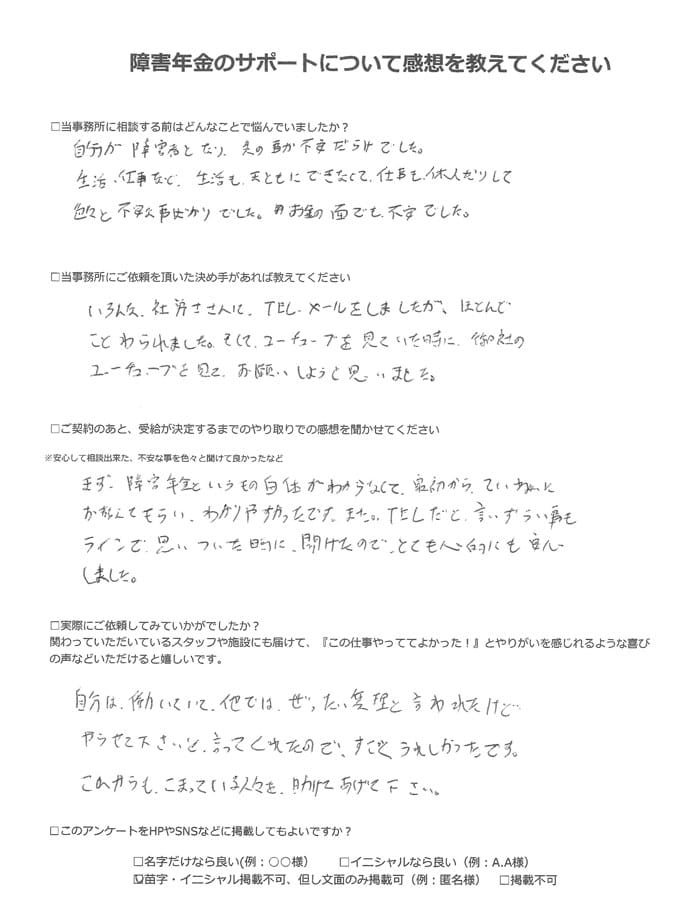 障害年金のサポートについて感想を教えてください
□当事務所に相談する前はどんなことで悩んでいましたか？
自分が障害者となり、先の事が不安だらけでした。
生活、仕事など、生活も、まともにできなくて、仕事も、休んだりして
色々と不安な事ばかりでした。お金の面でも、不安でした。
□当事務所にご依頼を頂いた決め手があれば教えてください
いろんな、社労士さんに、TEL、メールをしましたが、ほとんど
ことわられました。そして、ユーチューブを見ていた時に、御社の
ユーチューブを見て、お願いしようと思いました。
□ご契約のあと、受給が決定するまでのやり取りでの感想を聞かせてください
※安心して相談出来た、不安な事を色々と聞けて良かったなど
まず、障害年金というもの自体がわからなくて、最初から、ていねいに
おしえてもらい、わかりやすかったです。また。TELだと、言いずらい事も
ラインで、思いついた時に、聞けたので、とても心的にも安心
しました。
□実際にご依頼してみていかがでしたか？
関わっていただいているスタッフや施設にも届けて、『この仕事やっててよかった！』とやりがいを感じれるような喜び
の声などいただけると嬉しいです。
自分は、働いていて、他では、ぜったい無理と言われたけど
やらせて下さいと、言ってくれたので、すごくうれしかったです。
これからも、こまっている人々を、助けてあげて下さい。
□このアンケートをHPやSNSなどに掲載してもよいですか？
□名字だけなら良い(例：○○様）　□イニシャルなら良い（例：A.A様）
☑苗字・イニシャル掲載不可、但し文面のみ掲載可（例：匿名様）　□掲載不可